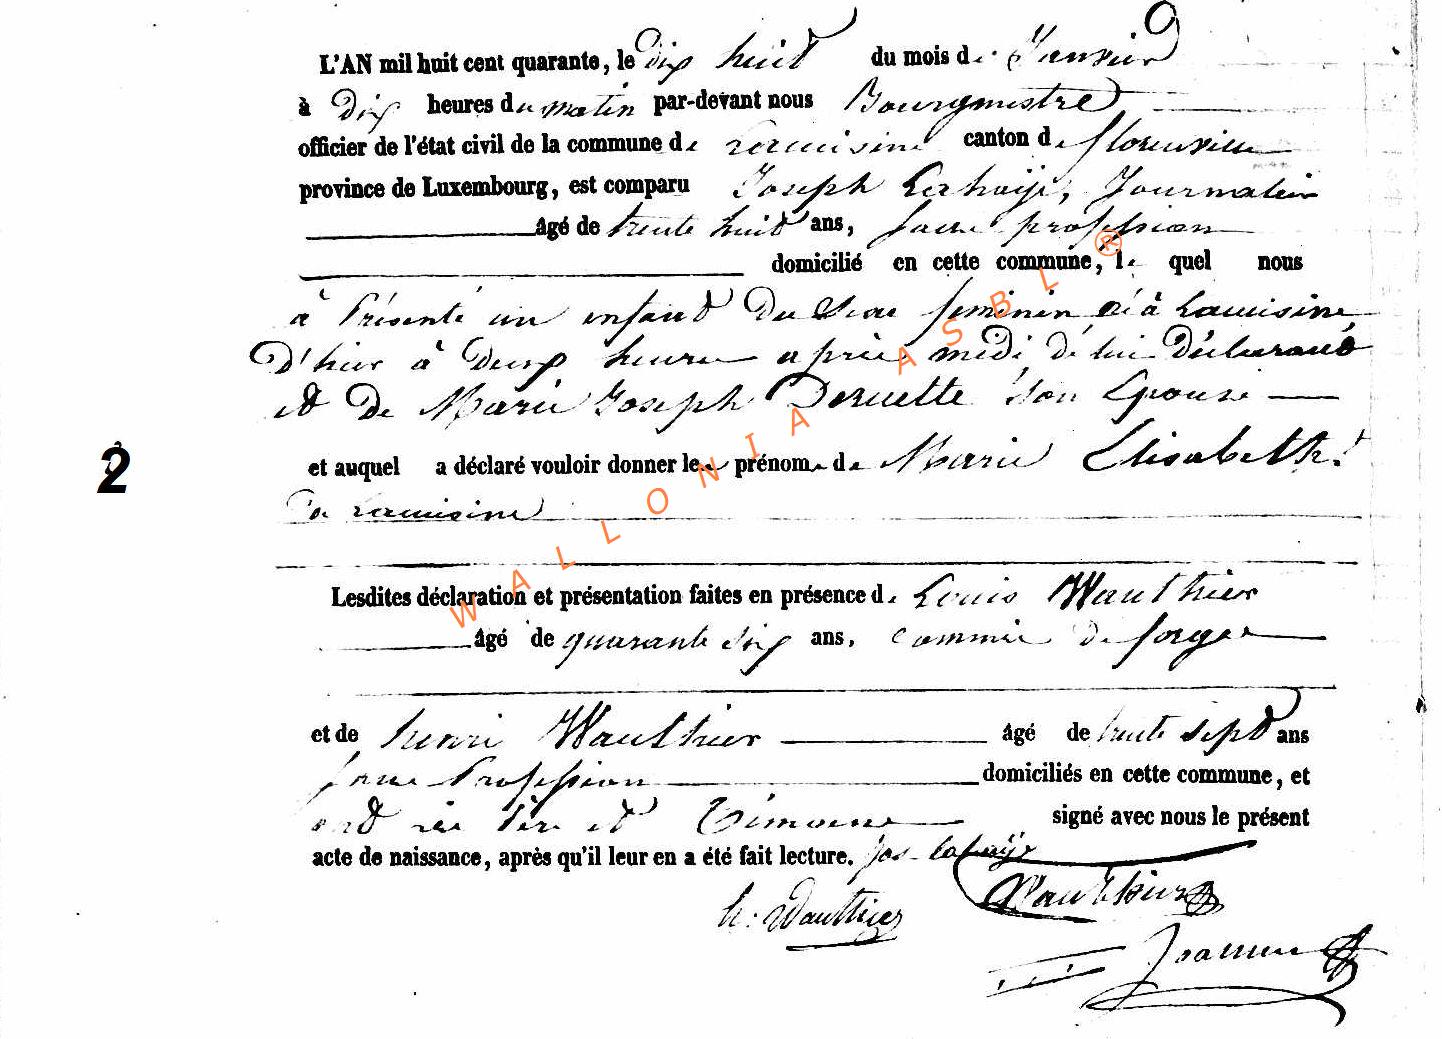 L'AN mil huit cent quarante, le dix huit du mois de Janvier
à Dix heures du matin par-devant nous Bourgmestre
officier de l'état civil de la commune de Lacuisine canton de florenville
province de Luxembourg, est comparu Joseph Lahaije, Journalier
âgé de trente huit ans, sans profession
domicilié en cette commune, le quel nous
à Présenté un enfant du Sexe feminin né à Lacuisine
D'hier à Deux heures après midi de lui Déclarant
et De Marie Joseph Deruette Son Epouse
2
et auquel a déclaré vouloir donner les prénoms de Marie Elisabeth
à Lacuisine
Lesdites déclaration et présentation faites en présence de Louis Wauthier
âgé de quarante Six ans, commis de forges
et de henri Wauthier âgé de trente sept ans
sans Profession domiciliés en cette commune, et
ont les Père et Témoins signé avec nous le présent
acte de naissance, après qu'il leur en a été fait lecture. Jos Lahaije
h: Wauthier Wauthier
WALLONIA ASBL ®